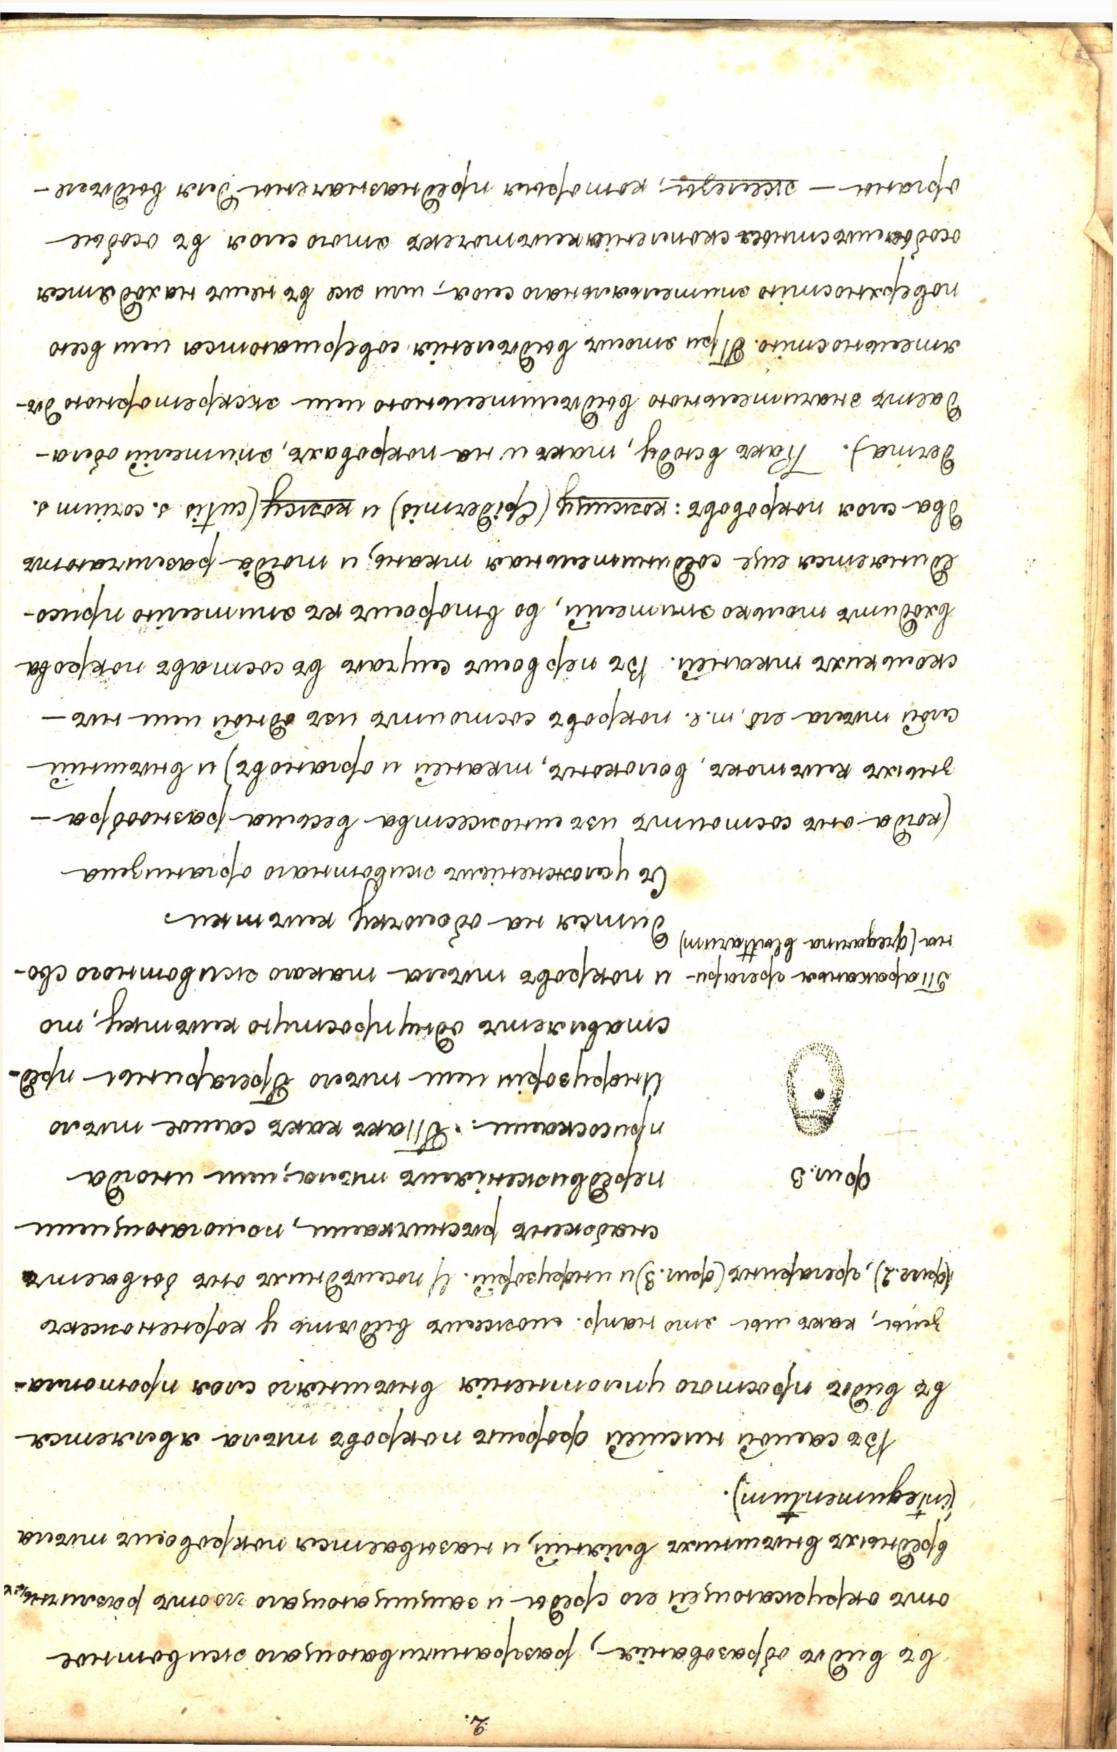 2.
въ видѣ образованiя, разграничивающаго животное
отъ окружающей его среды и защищающаго его отъ различныхъ
вредныхъ внѣшнихъ влiянiй, и называется покровомъ тѣла
(integumentum).
Въ самой низшей формѣ покровъ тѣла является
въ видѣ простого уплотненiя внѣшняго слоя протоплаз-
змы, какъ мы это напр. можемъ видѣть у корненожекъ
(фиг. 2), грегаринъ (фиг. 3) и инфузорiй. У послѣднихъ онъ бываетъ
снабженъ рѣсничками, помогающими
фиг. 3
передвиженiямъ тѣла, или иногда
присосками. Такъ какъ самое тѣло
Инфузорiи или тѣло Грегарины пред-
ставляетъ одну простую клѣтку, то
Тараканья грегари-
на (gregarina blattarum)
и покровъ тѣла такаго животнаго сво-
дится на оболочку клѣтки.
Съ усложненiемъ животнаго организма
(когда онъ состоитъ изъ множества весьма разнообра-
зныхъ клѣтокъ, волоконъ, тканей и органовъ) и внѣшнiй
слой тѣла его, т. е. покровъ состоитъ изъ одной или нѣ-
сколькихъ тканей. Въ первомъ случаѣ въ составъ покрова
входитъ только эпителiй, во второмъ къ эпителiю присо-
единяется еще соединительная ткань, и тогда различаютъ
два слоя покрововъ: кожицу (Epidermis) и кожу (cutis s. corium s.
derma). Какъ всюду, такъ и на покровахъ, эпителiй обла-
даетъ значительною выдѣлительною или экскреторною дѣ-
ятельностiю. При этомъ выдѣленiя совершаются или всею
поверхностiю эпителiальнаго слоя, или же въ немъ находятся
особыя мѣстныя скопленiя клѣточекъ этого слоя въ особые
органы — железы, которыя предназначены для выдѣле-